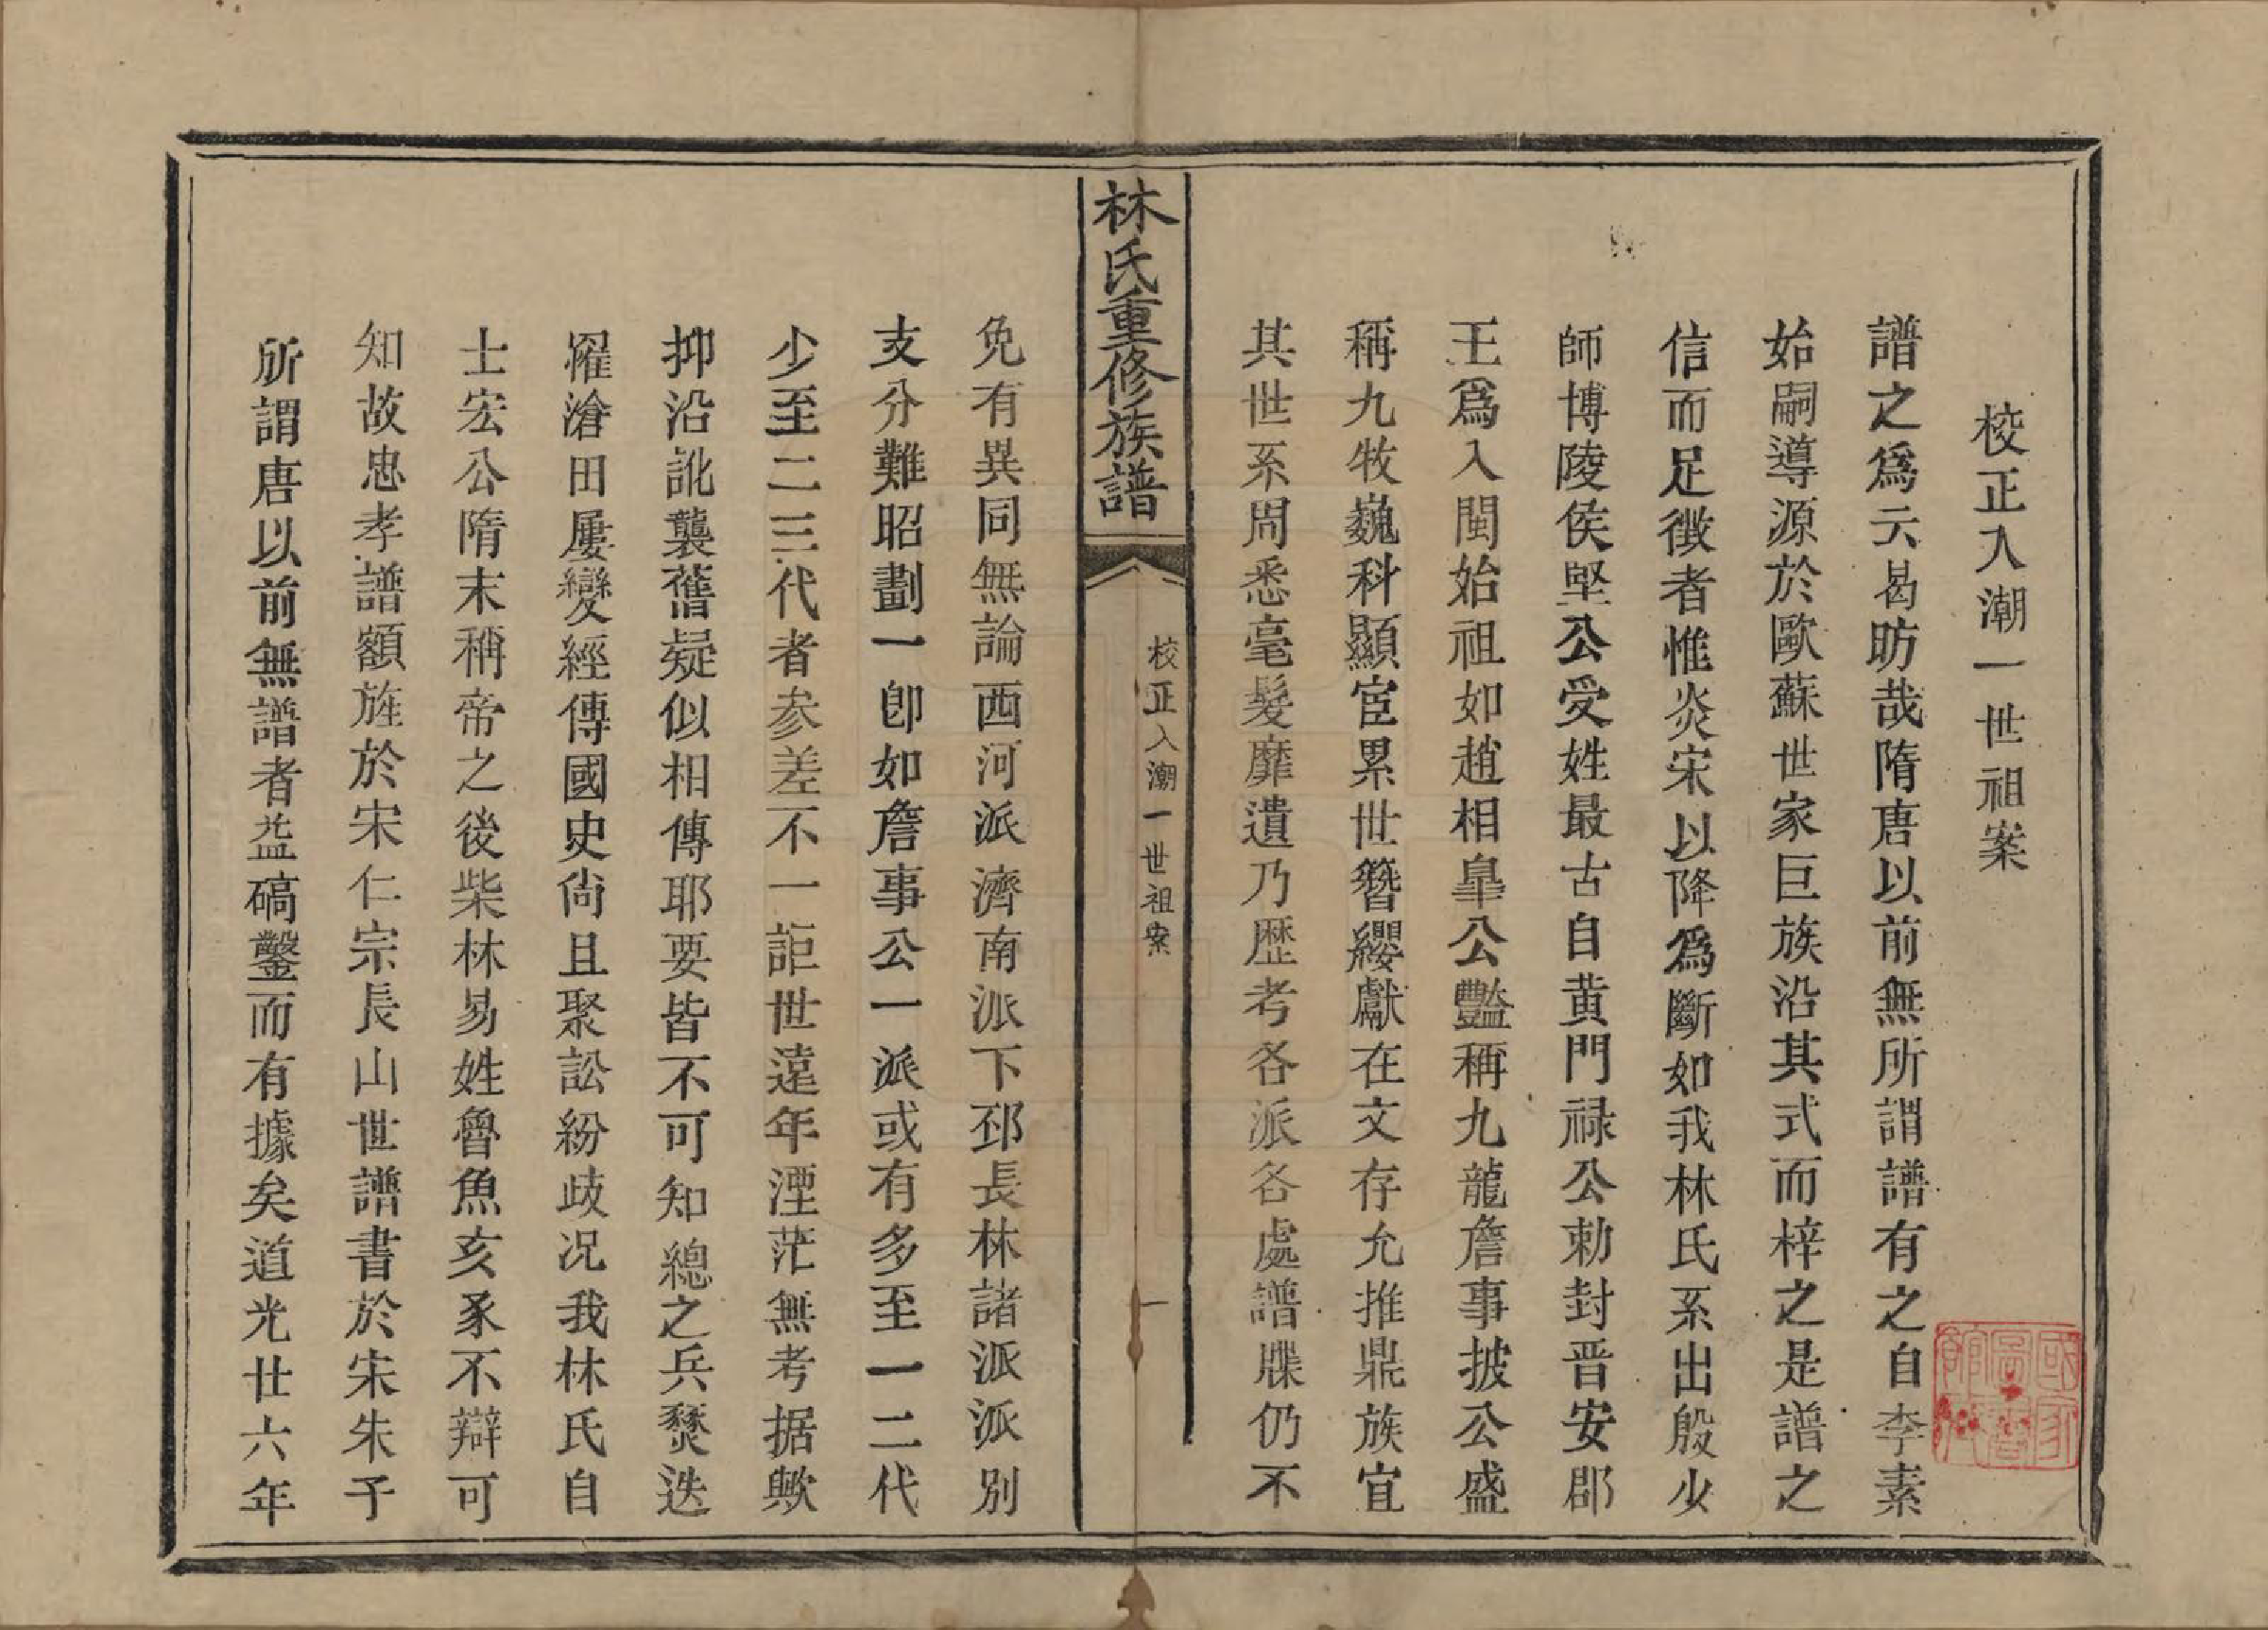 校正入潮一世祖案
譜之爲云曷昉哉隋唐以前無所謂譜有之自李素
始嗣導源於歐蘇世家巨族沿其式而梓之是譜之
信而足徵者惟炎宋以降爲斷如我林氏系出殷少
師博陵侯堅公受姓最古自黃門禄公勅封晋安郡
王爲入閩始祖如趙相臯公豔稱九龍詹事披公盛
稱九牧巍科顯宦累世簪纓獻在文存允推鼎族宜
其世系周悉毫髮靡遺乃歴考各派各處譜牒仍不
林氏重修族譜
校正入潮一世祖案
一
免有異同無論西河派濟南派下邳長林諸派派别
支分難昭劃一卽如詹事公一派或有多至一二代
少至二三代者参差不一詎世遠年湮茫無考据歟
抑沿訛襲舊疑似相傳耶要皆不可知總之兵燹迭
罹滄田屢變經傳國史尙且聚訟紛歧况我林氏自
士宏公隋末稱帝之後柴林易姓魯魚亥豕不辯可
知故忠孝譜額旌於宋仁宗長山世譜書於宋朱子
所謂唐以前無譜者益碻鑿而有據矣道光廿六年
國家圖書館藏